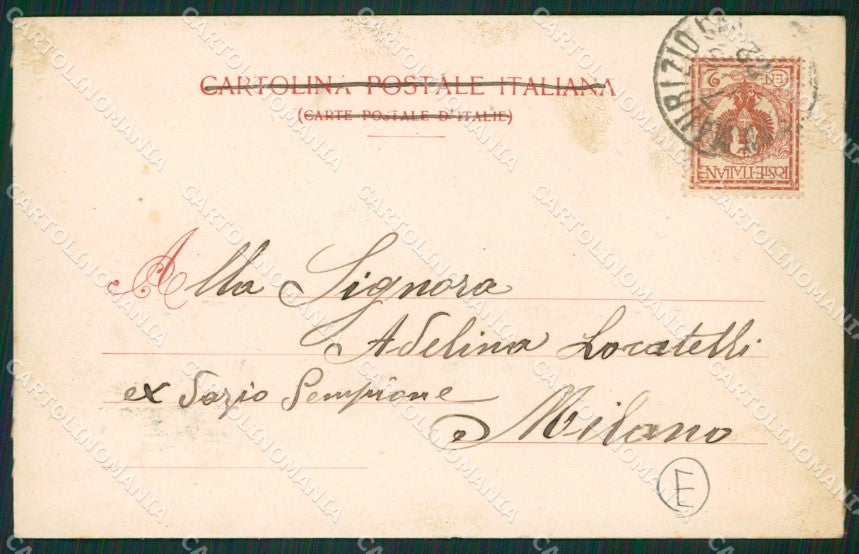 CARTOLINA POSTALE ITALIANA
(CARTE POSTALE D'ITALIE)
CEN 2
POSTE ITALIANE
Alla Signora
Adelina Locatelli
ex Dazio Sempione
Milano
E
CARTOLINOMANIA